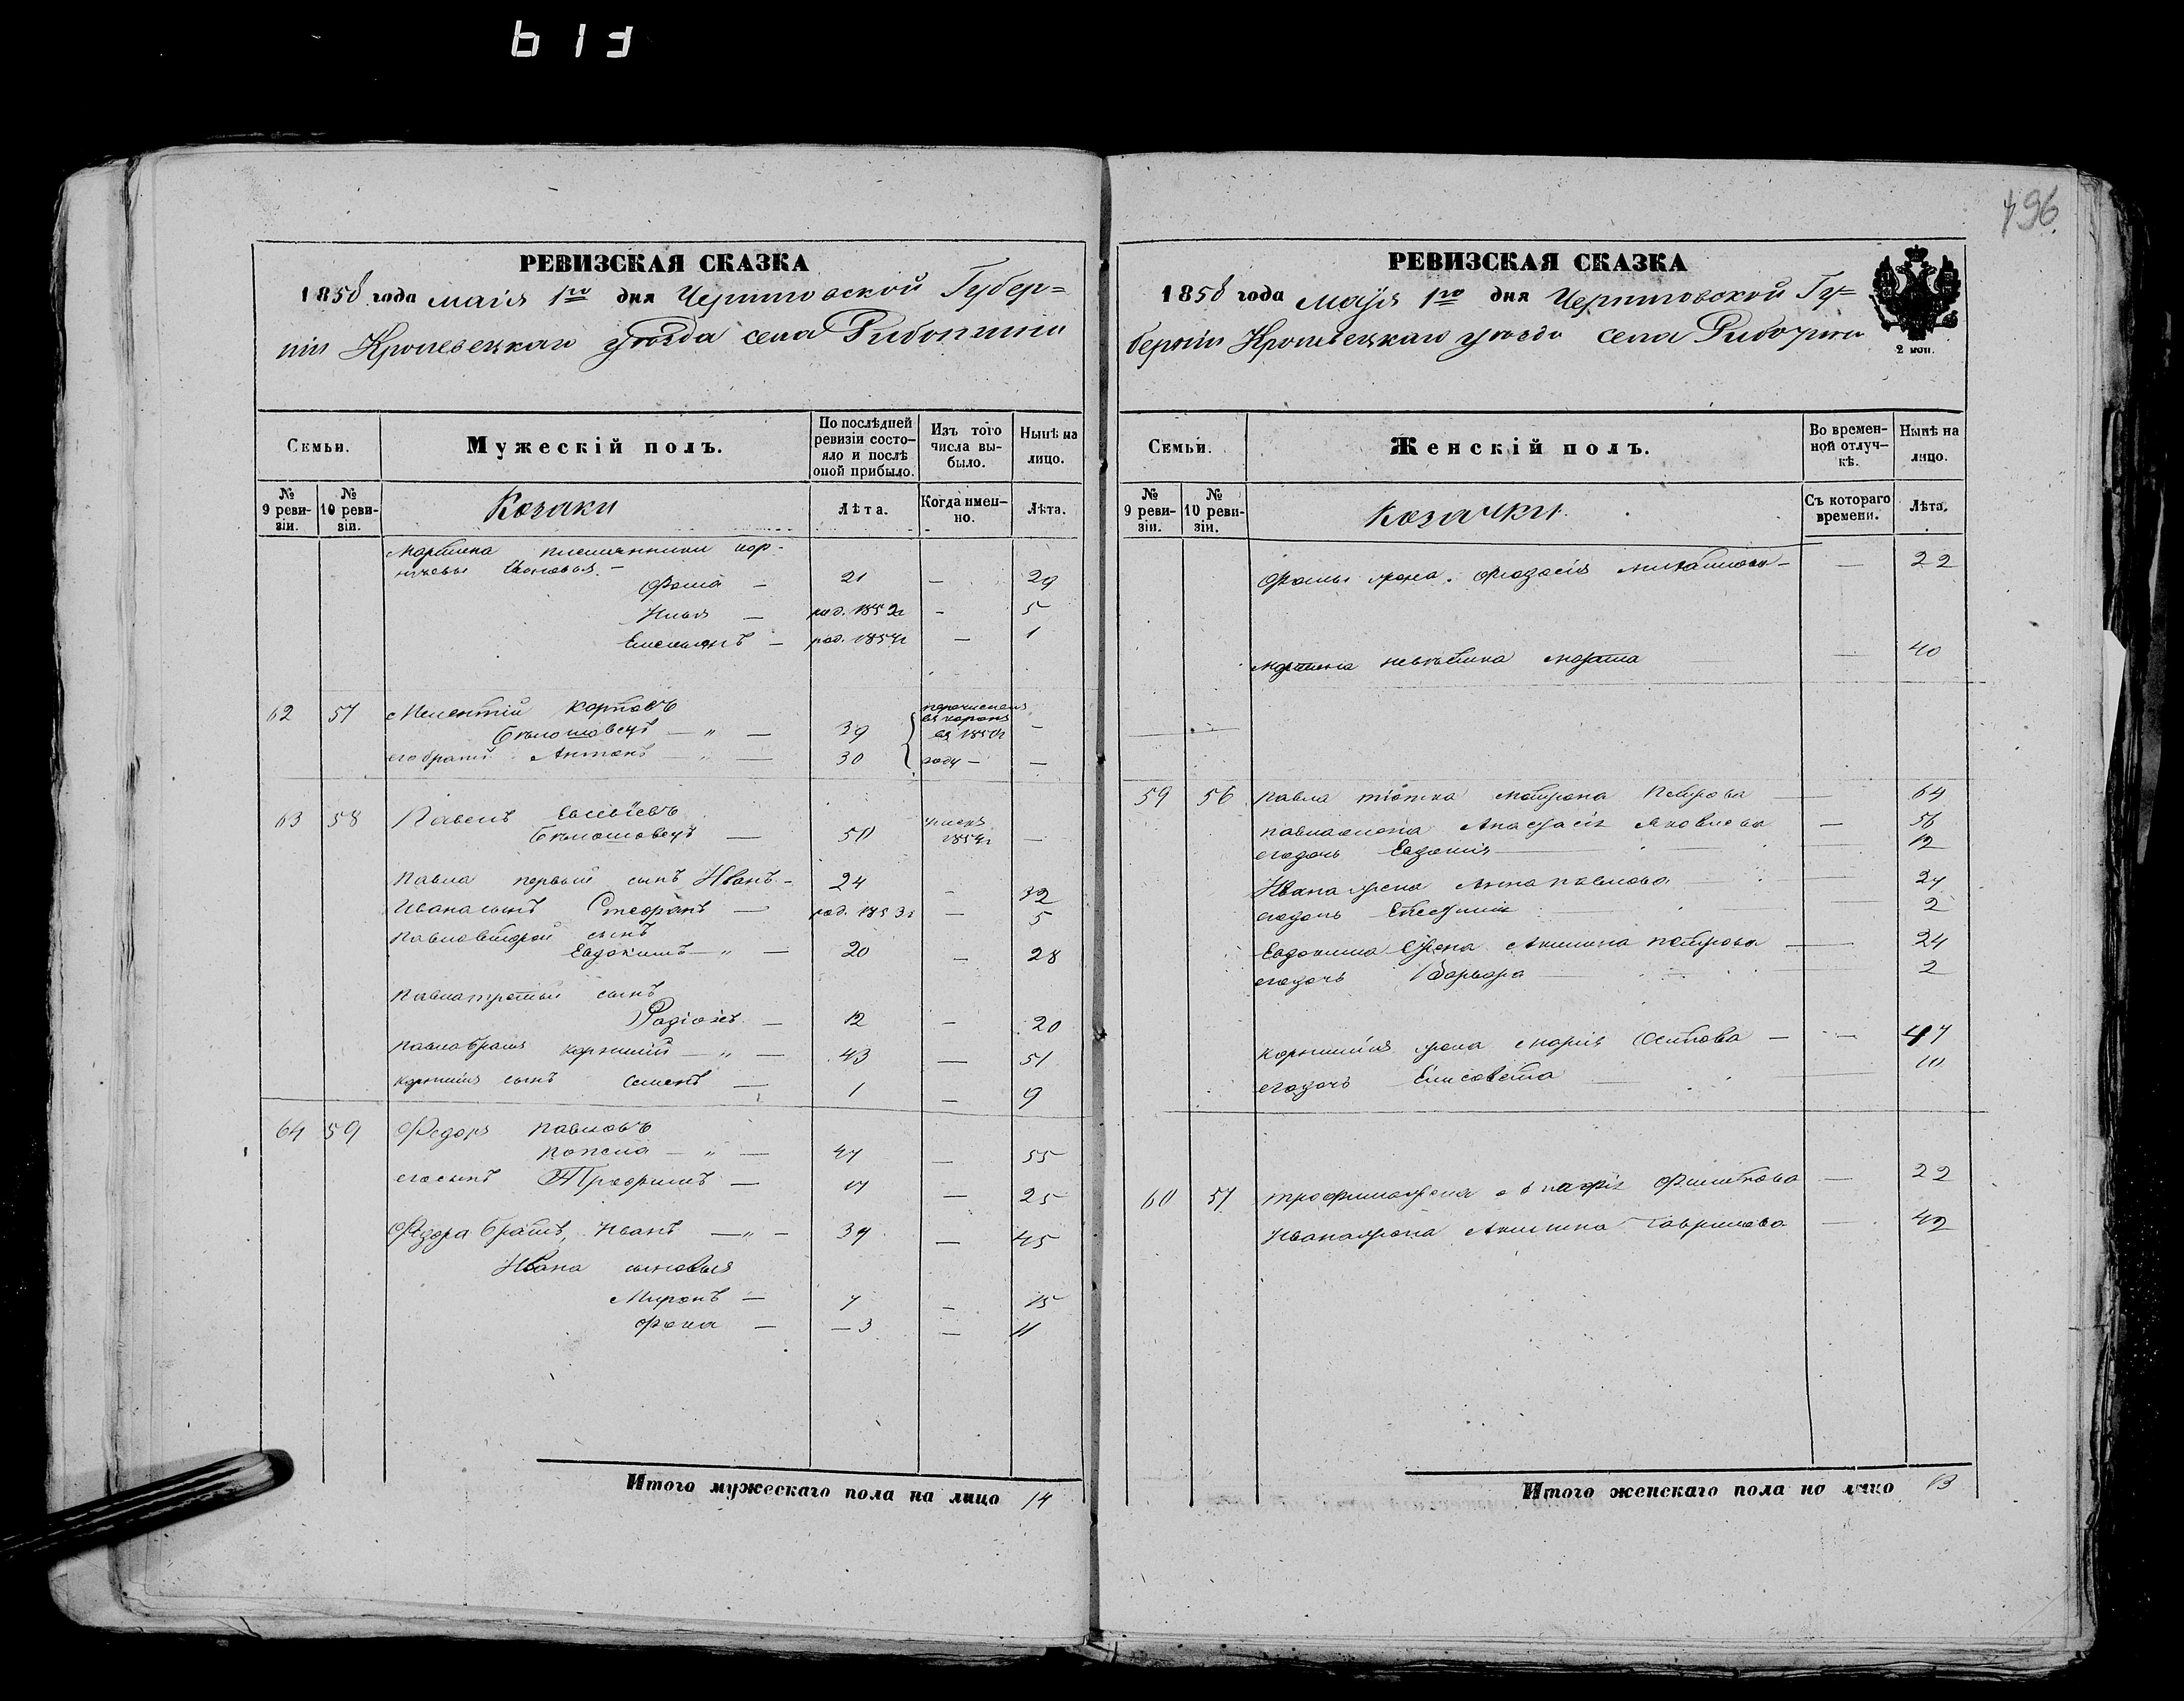 613
496.
РЕВИЗСКАЯ СКАЗКА
1858 года маія 1го дня Черниговской Губер=
ніи Кролевецкаго уѣзда села
Семьи.
Мужескій полъ.
По послѣдней ревизіи состояло и послѣ оной прибыло.
Изъ того числа выбыло.
Нынѣ на лицо.
№ 9 ревизіи.
№ 10 ревизіи.
Козаки
Лѣта.
Когда именно.
Лѣта.
племянники
Фома — 21 — 29
Илья — род. 1852г - 5
Емельянъ — род. 1857г — 1
62 57 Мелентій Карповъ
Бѣлошовецъ — „ — 39 1850г —
его братъ Антонъ — „ — 30 году — —
63 58 Павелъ Евсевіевъ
Бѣлошовецъ — 50 1854г —
Павла первый сынъ Иванъ - 24 — 32
Ивана сынъ Стефанъ — род. 1853г — 5
Павла второй сынъ
Евдокимъ — „ — 20 — 28
Павла третій сынъ
Радіонъ — 12 — 20
Павла братъ Корнилій — „ — 43 — 51
Корнилія сынъ Семенъ — 1 — 9
64 59 Федоръ Павловъ
— „ — 47 — 55
его сынъ Трофимъ — 17 — 25
Федора братъ, Иванъ — „ — 37 — 45
Ивана сыновья
Миронъ — 7 — 15
Фома — 3 — 11
Итого мужескаго пола на лицо 14
РЕВИЗСКАЯ СКАЗКА
1858 года маія 1го дня Черниговской Гу=
берніи Кролевецкаго уѣзда села
2 коп.
Семьи.
Женскій полъ.
Во временной отлучкѣ.
Нынѣ на лицо.
№ 9 ревизіи.
№ 10 ревизіи.
Козачки.
Съ котораго времени.
Лѣта.
Фомы жена — 22
— 40
59 56 Павла тіотка Мотрона Петрова — 64
Павла жена Анастасія Яковлева — 56
его дочь Евдокія — 12
Ивана жена Анна Павлова — 27
его дочь — 2
Евдокима жена Акилина Петрова — 24
его дочь Варвара — 2
Корнилія жена Марія Осипова — 47
его дочь Елисавета — 10
60 57 Трофима жена Филипова — 22
Ивана жена Акилина Гаврилова — 42
Итого женскаго пола на лицо 13